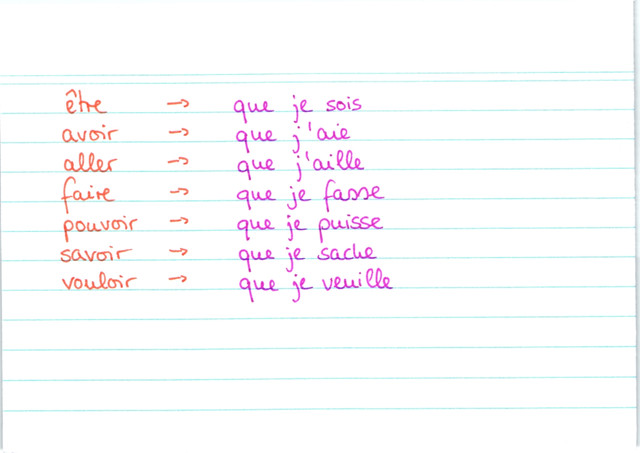 être → que je sois
avoir → que j'aie
aller → que j'aille
faire → que je fasse
pouvoir → que je puisse
savoir → que je sache
vouloir → que je veuille